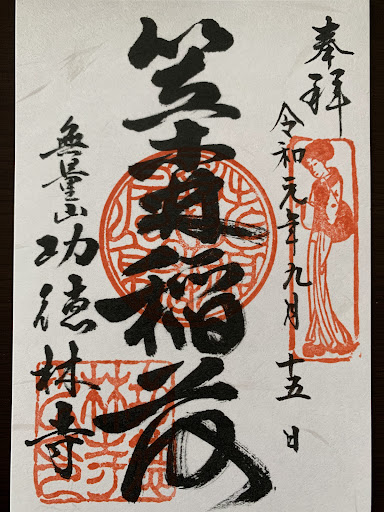 奉拝
令和元年九月十五日
笠森稲荷
無量山功徳林寺